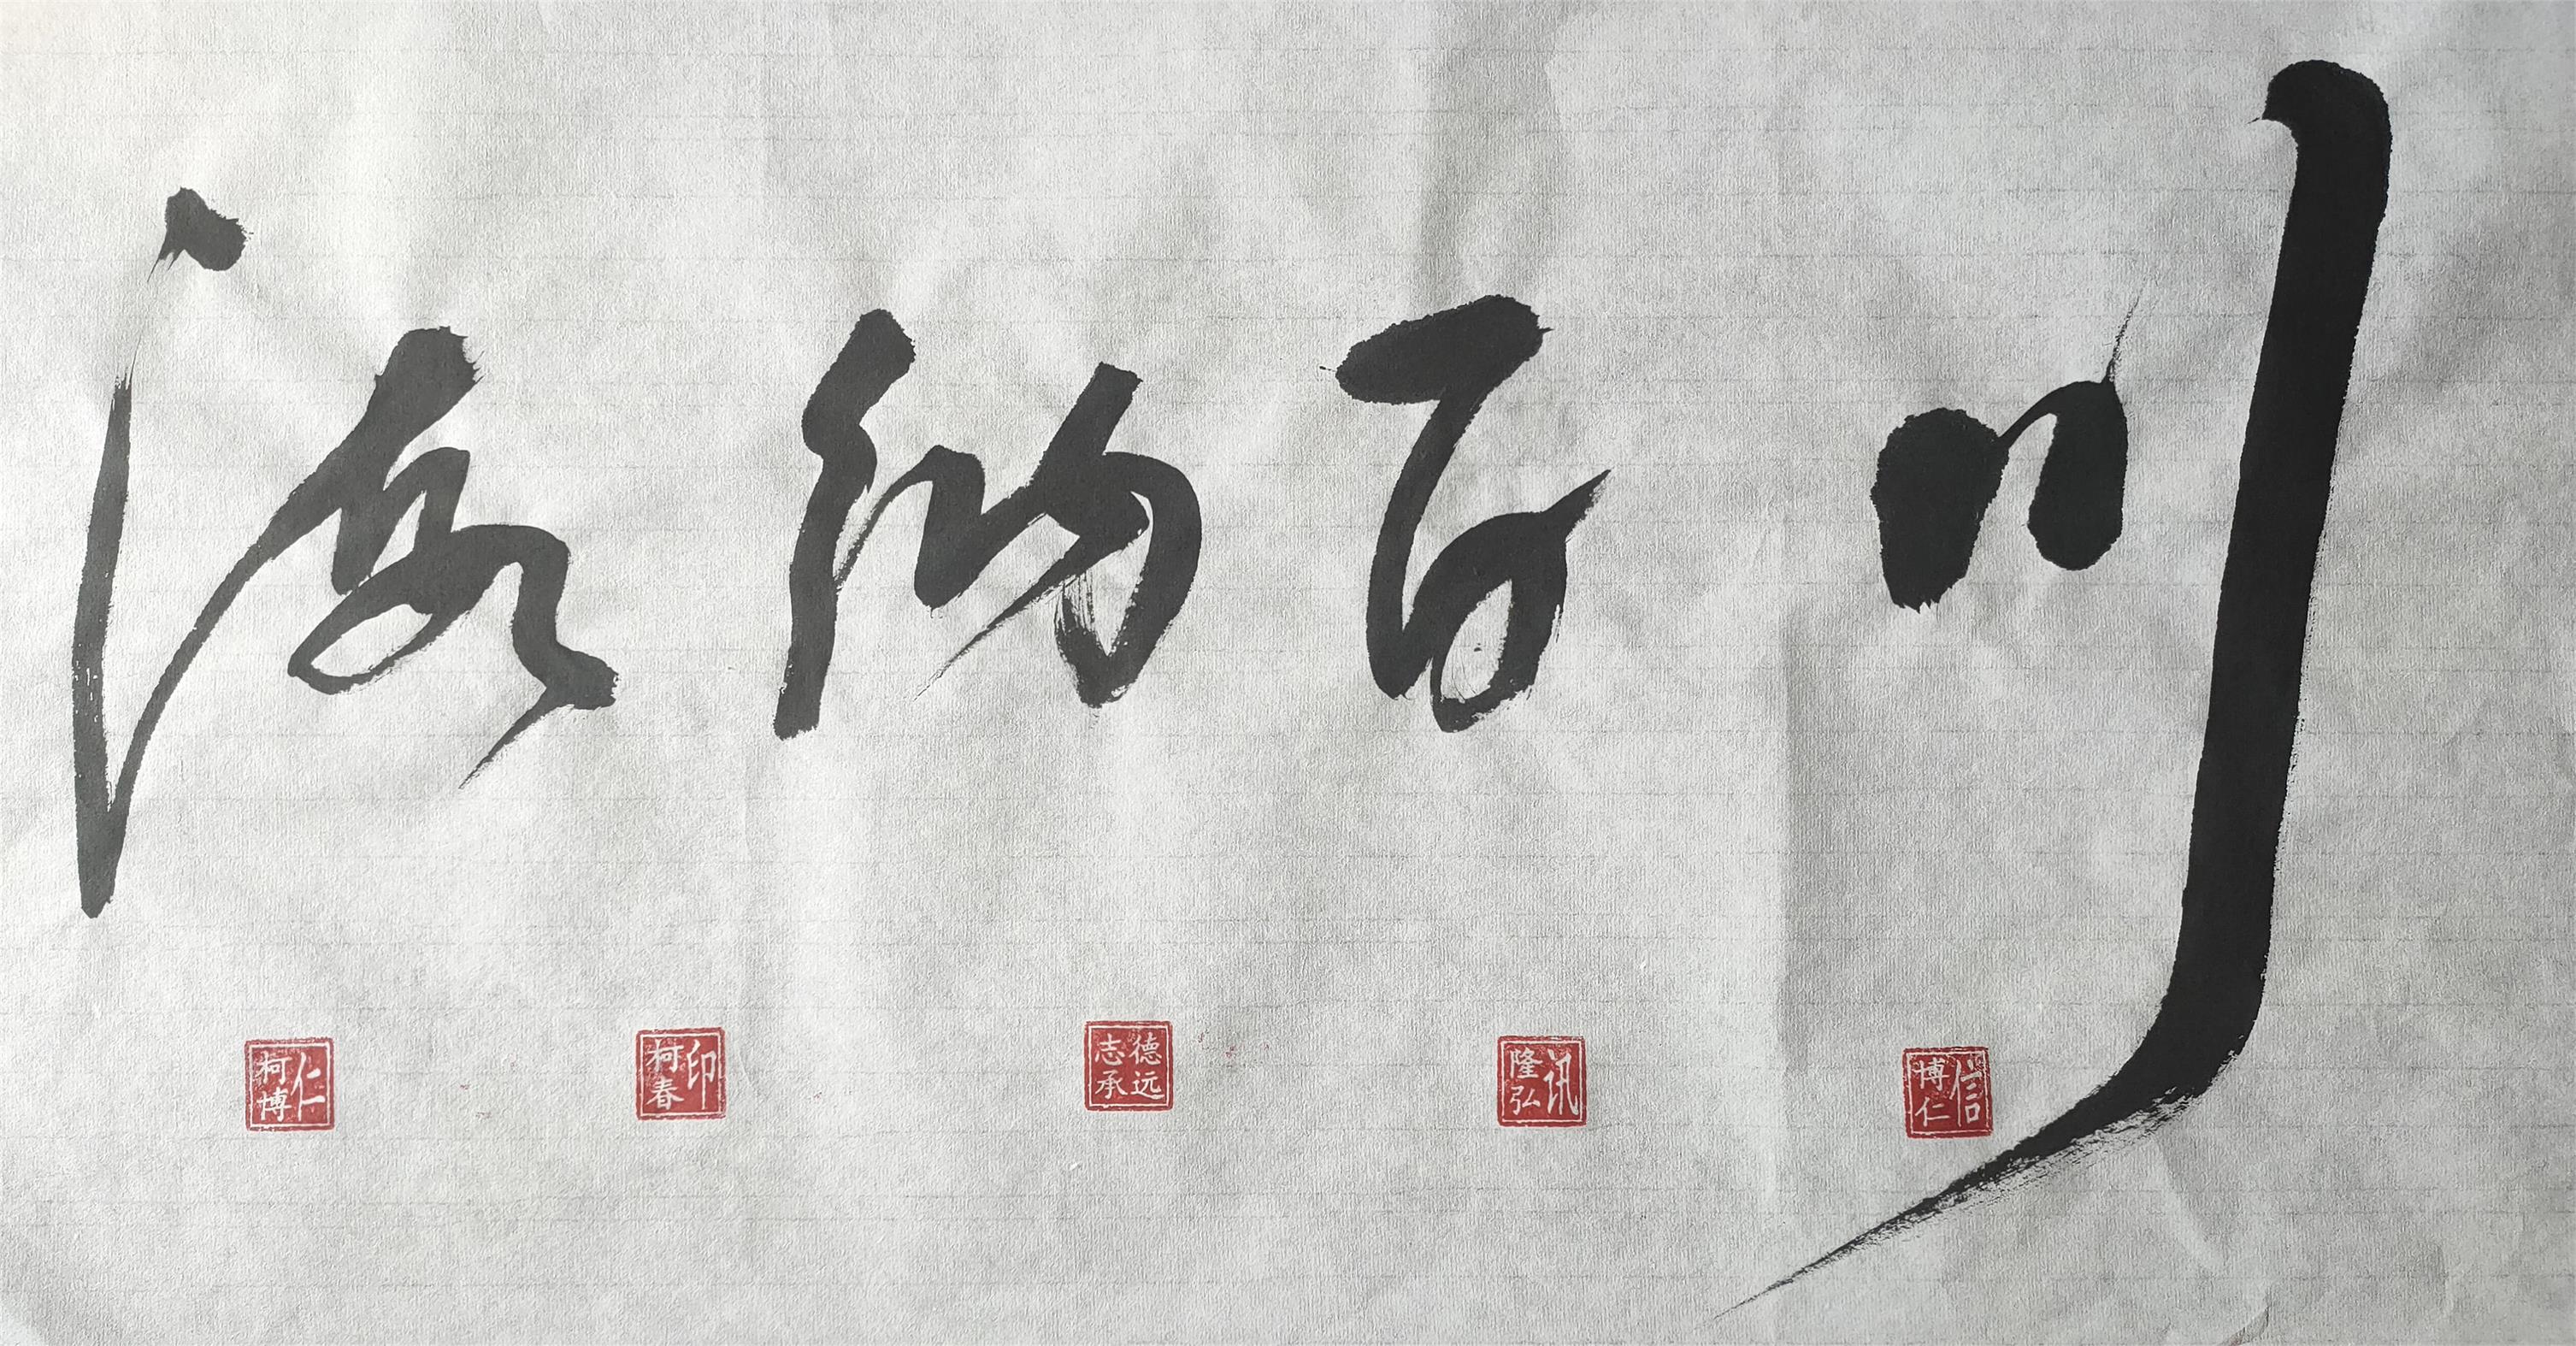 海纳百川
柯博仁
柯春印
志承德远
隆弘讯
博仁信